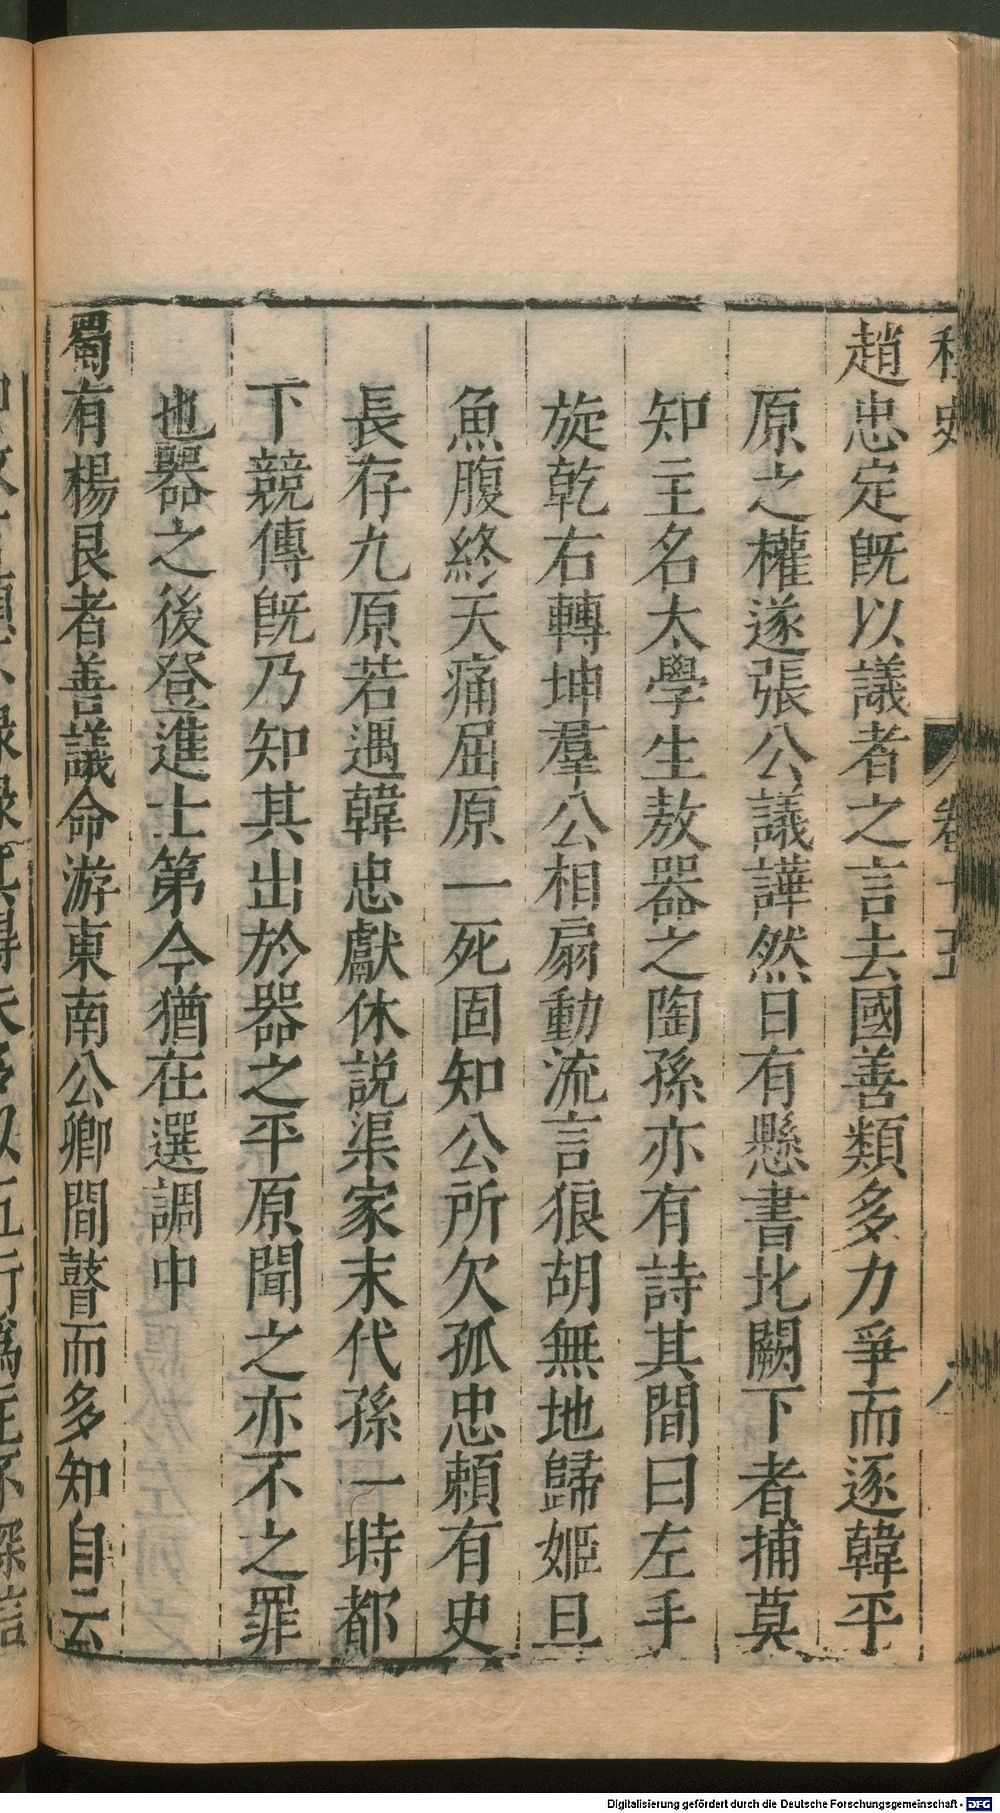 趙忠定旣以議者之言去國善類多力爭而逐韓平
原之權遂張公議譁然日有懸書北闕下者捕莫
知主名太學生敖器之陶孫亦有詩其間曰左手
旋乾右轉坤羣公相扇動流言狼胡無地歸姬旦
魚腹終天痛屈原一死固知公所欠孤忠賴有史
長存九原若遇韓忠獻休説渠家末代孫一時都
下競傳旣乃知其出於器之平原聞之亦不之罪
也器之後登進士第今猶在選調中
蜀有楊艮者善議命游東南公卿間瞽而多知自云
Digitalisierung gefördert durch die Deutsche Forschungsgemeinschaft - DFG